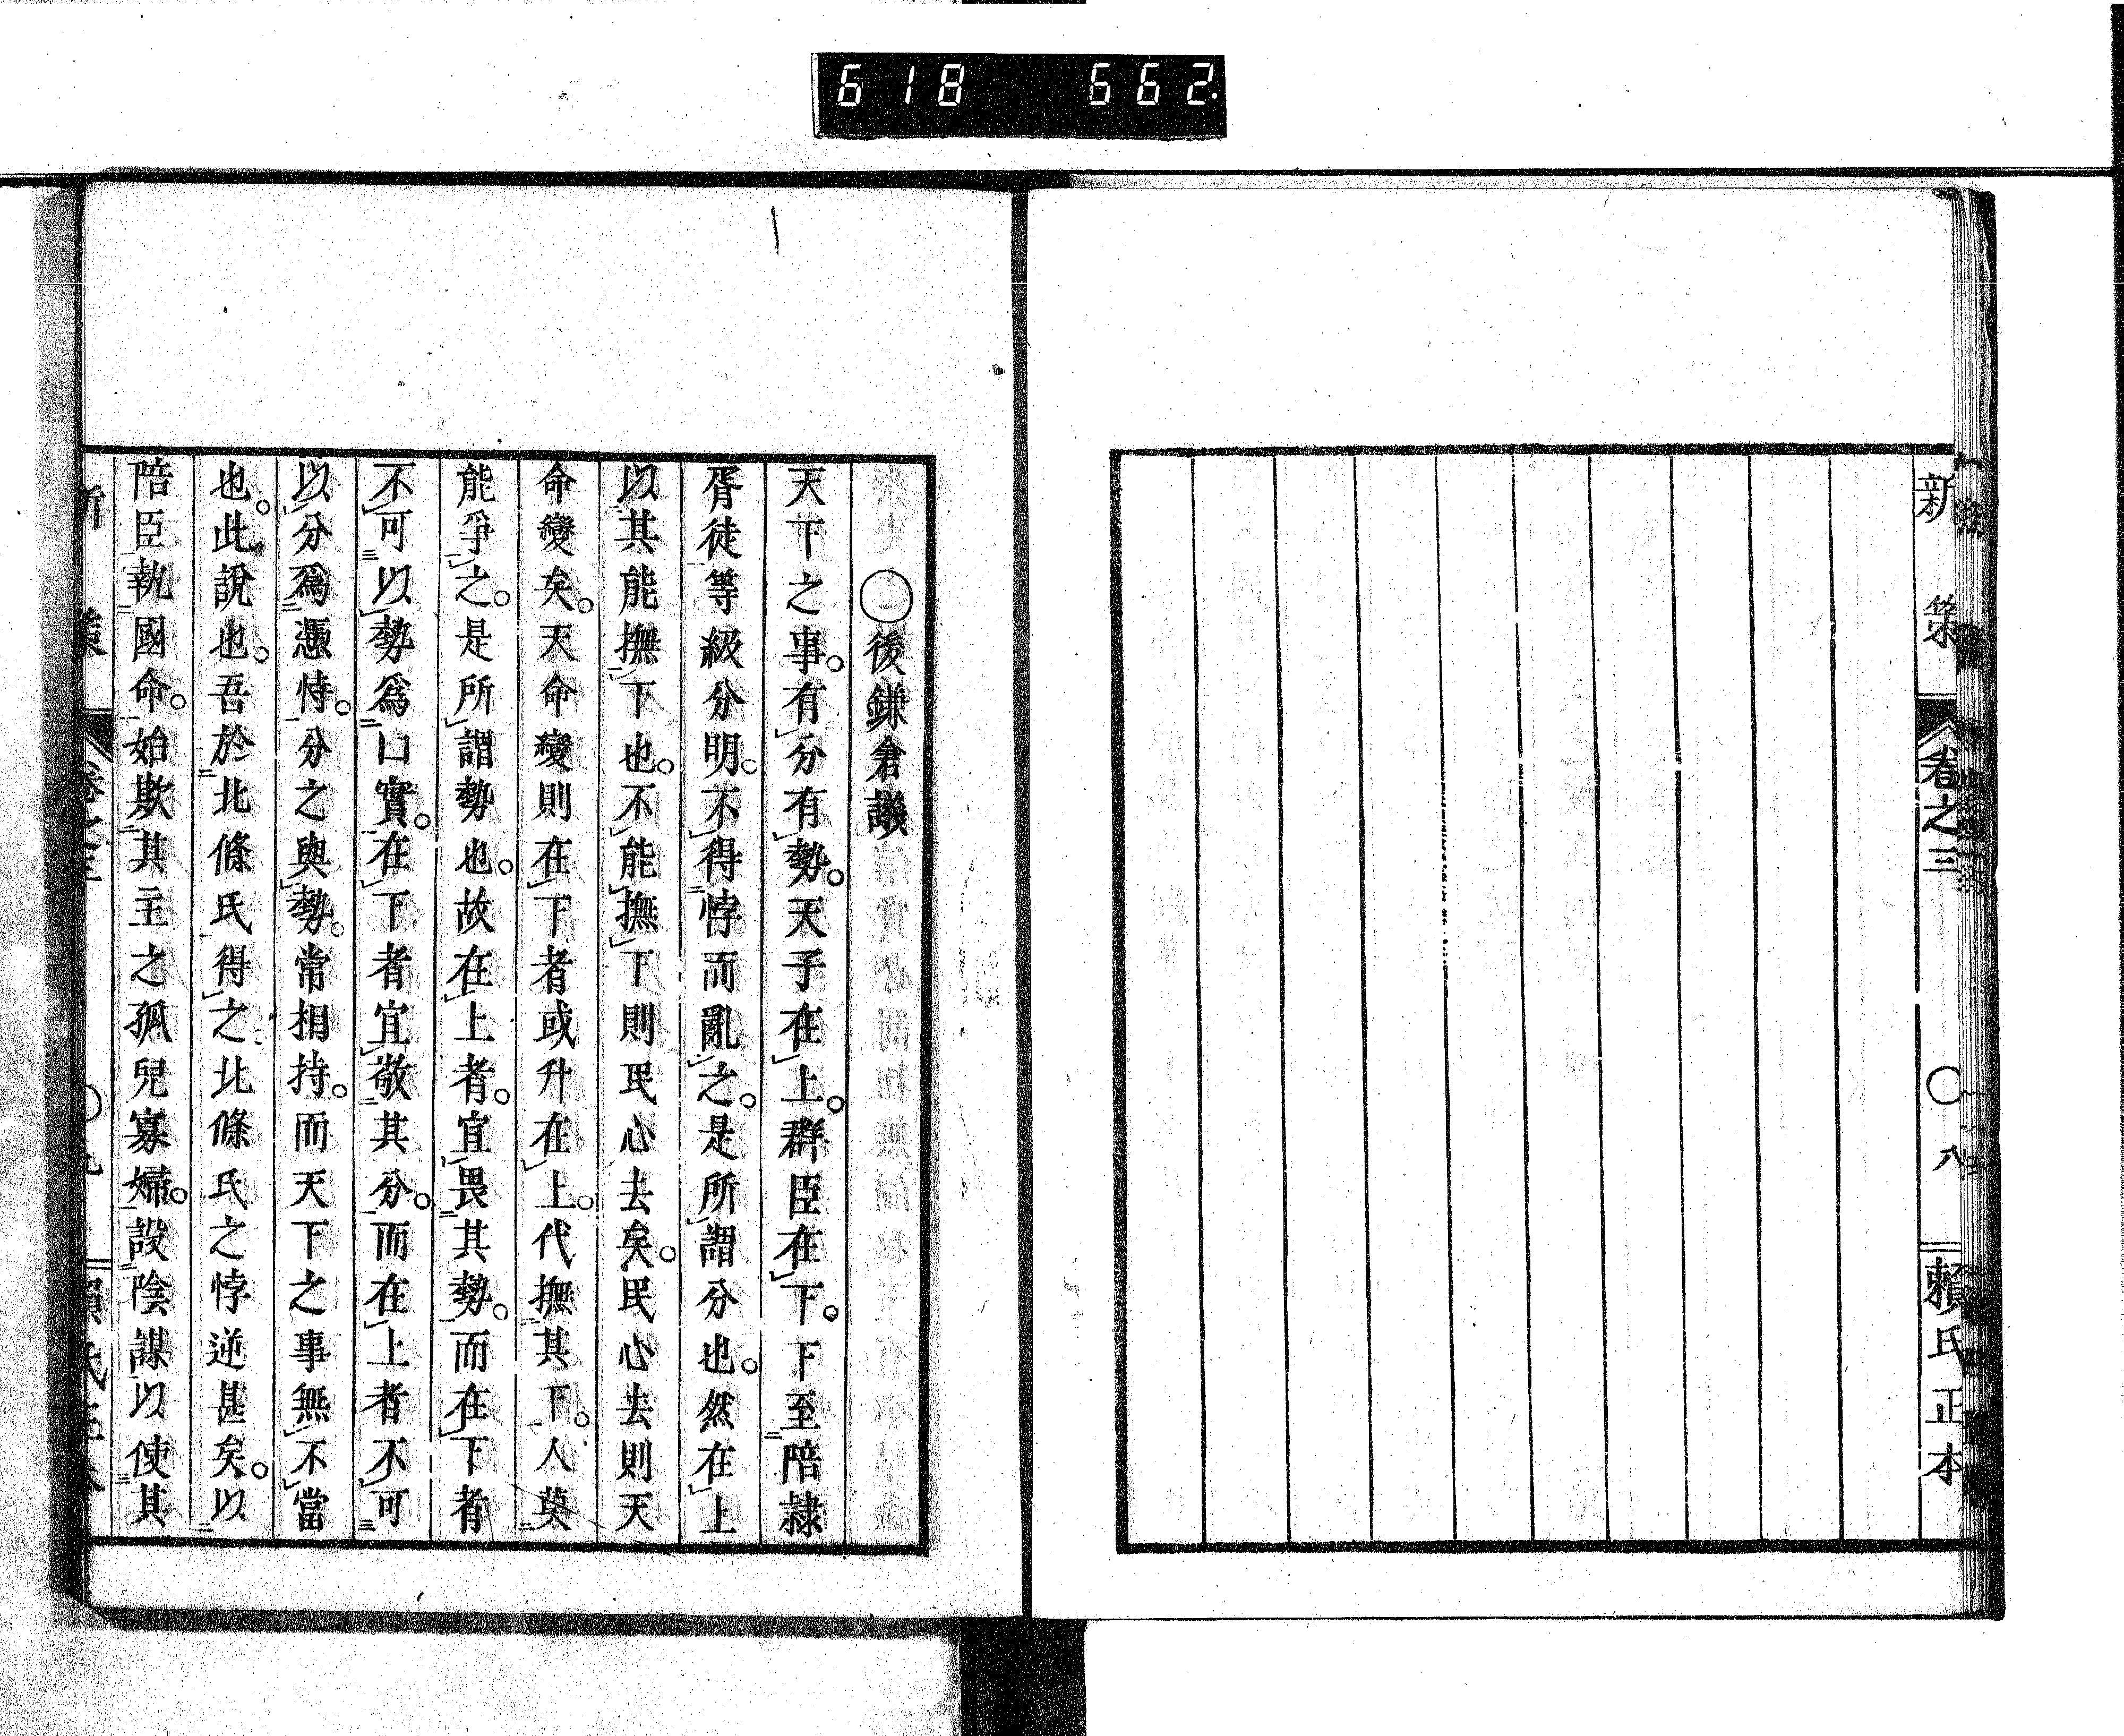 618 662.
新策 卷之三 〇八 賴氏正本
〇後鎌倉議
天下之事。有分有勢。天子在上。群臣在下。下至陪隷
胥徒等級分明。不得悖而亂之。是所謂分也。然在上
以其能撫下也。不能撫下則民心去矣。民心去則天
命變矣。天命變則在下者或升在上。代撫其下。人莫
能爭之。是所謂勢也。故在上者。宜畏其勢。而在下者
不可以勢爲口實。在下者宜敬其分。而在上者不可
以分爲憑恃。分之與勢。常相持。而天下之事無不當
也。此說也。吾於北條氏得之北條氏之悖逆甚矣。以
陪臣執國命。始欺其主之孤兒寡婦。設陰謀以使其